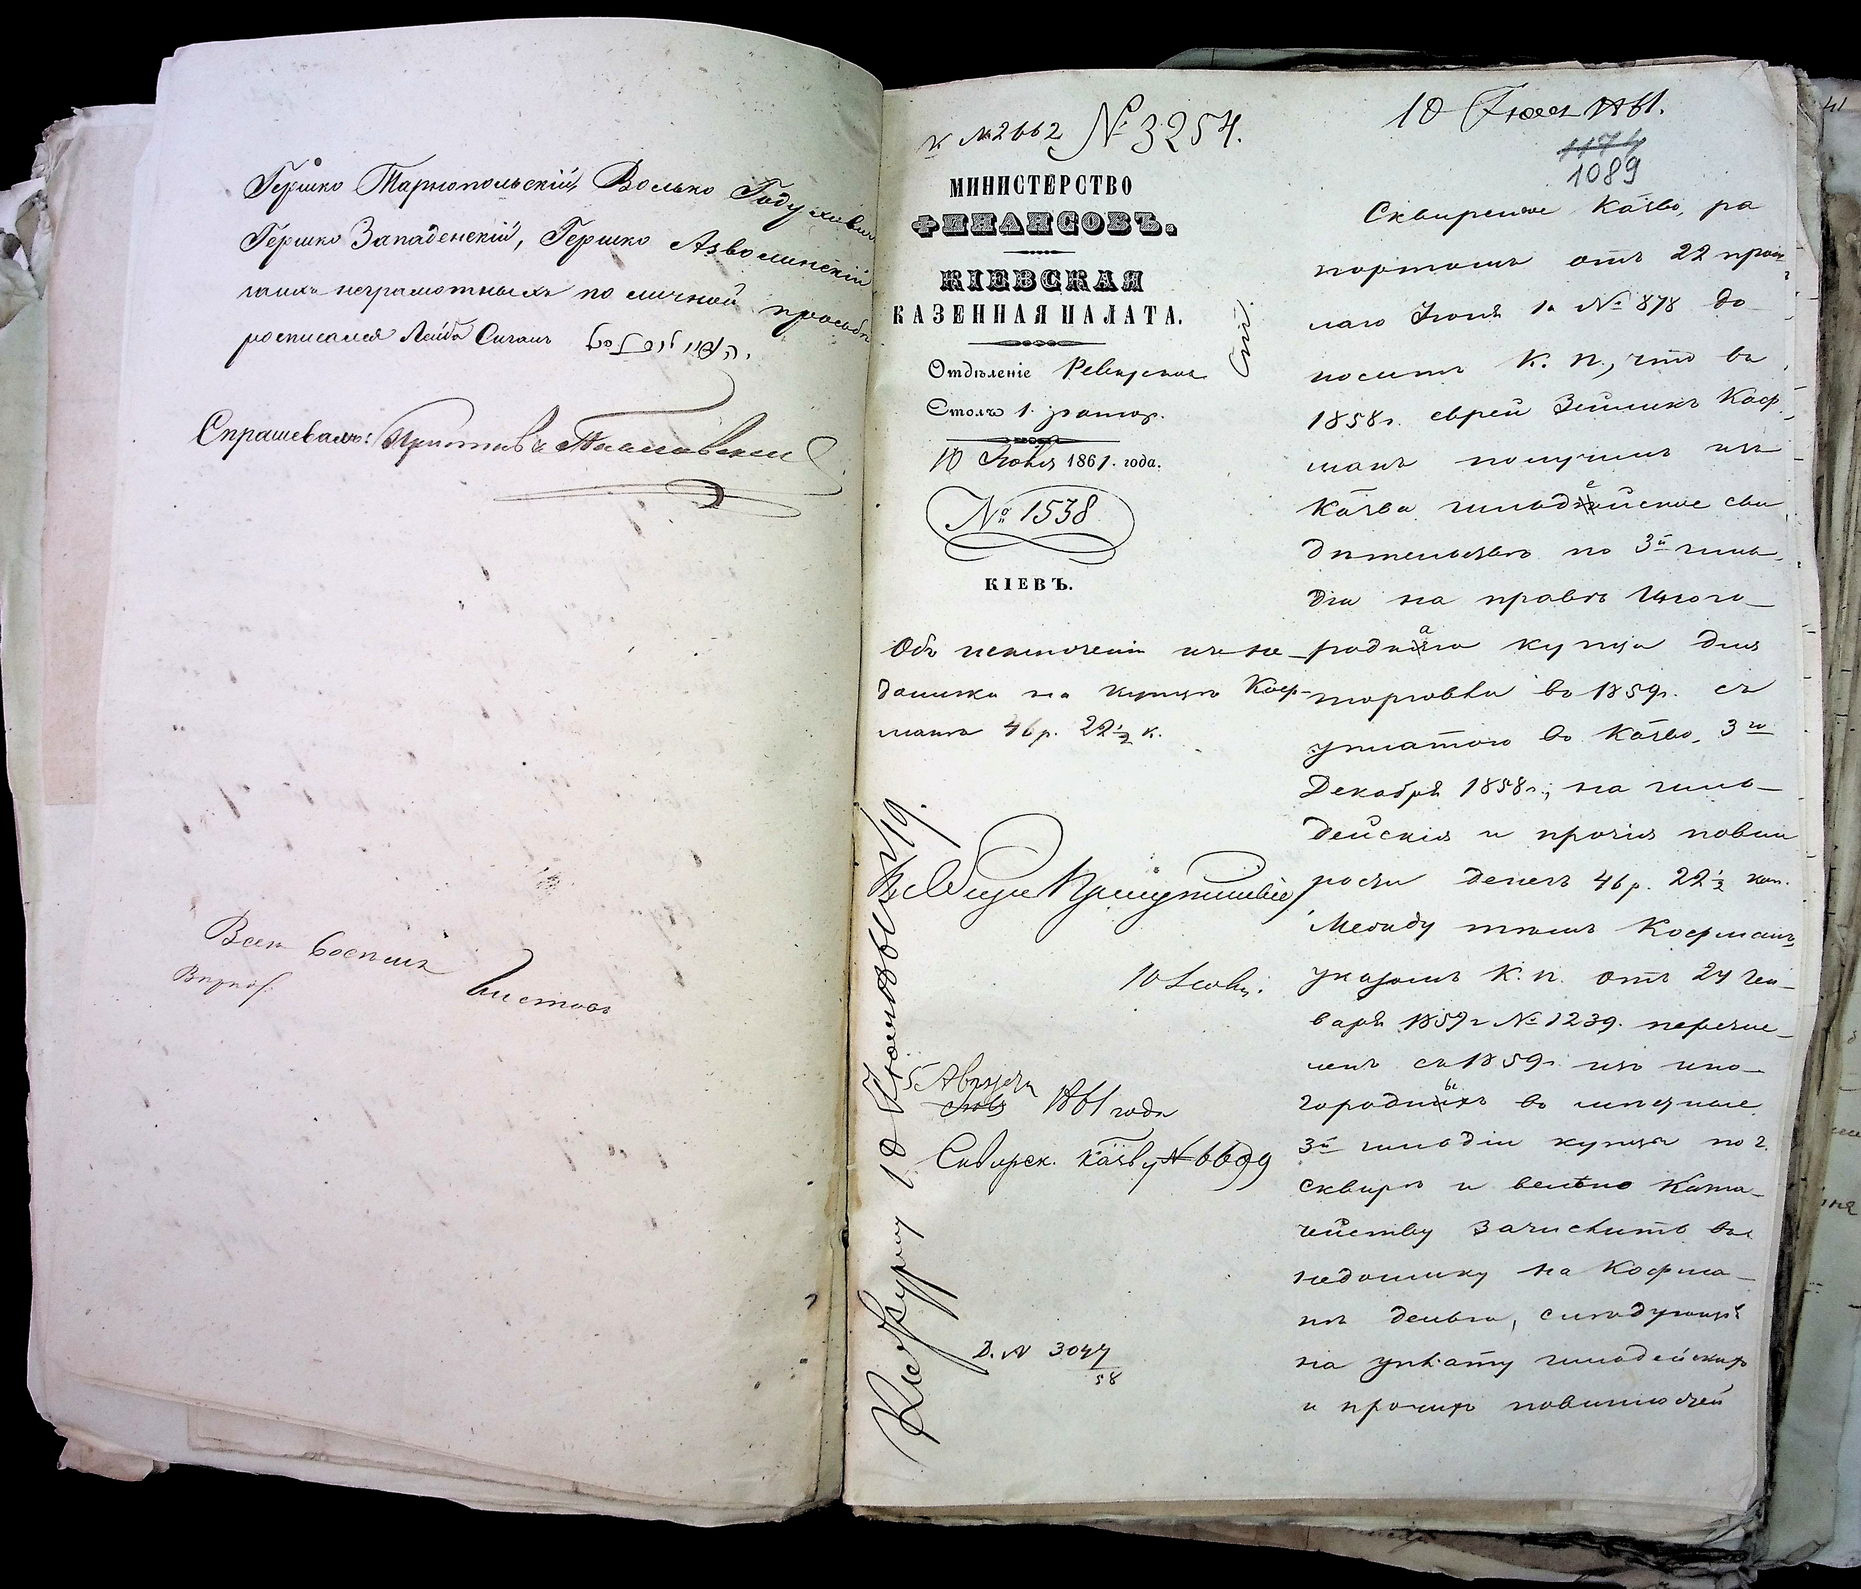 Гершко Тарнопольскій, Волько Годулхович
Гершко Западенскій, Гершко Азволинскій
неграмотныхъ по личной просьбѣ
росписался Лейба Сиганъ
Спрашевалъ: Приставъ
Всѣхъ восемь листовъ
к №2662 № 3254.
МИНИСТЕРСТВО
ФИНАНСОВЪ.
КІЕВСКАЯ
КАЗЕННАЯ ПАЛАТА.
Отдѣленіе Ревизское
Столъ 1.
10 Іюля 1861. года.
№ 1538
КІЕВЪ.
Объ исключеніи изъ не-
доимки на купцѣ Коф-
манѣ 46 р. 22½ к.
10 Іюля.
5 Августа
1861 года
Сквирск. Каз-ву № 6699
Д. № 3044
58
10 Іюля 1861.
1174
1089
Сквирское Каз-во, ра
портомъ отъ 22 прош-
лаго Іюня за № 878 до-
носитъ К. П., что въ
1858 г. еврей Зейликъ Коф-
манъ получилъ изъ
Каз-ва гильдейское сви
дѣтельство по 3й гиль-
діи на правѣ Иного-
родная купца для
торговли въ 1859 г. съ
уплатою въ Каз-во, 3го
Декабря 1858 г., на гиль-
дейскія и прочія повин
ности денегъ 46 р. 22½ коп.
Между тѣмъ Кофманъ,
указомъ К. П. отъ 24 Ген-
варя 1859 г № 1239. перечис-
ленъ съ 1859 г. изъ ино-
городныхъ въ мѣстные
3й гильдіи купцы по г.
Сквирѣ и велѣно Казна-
чейству зачислить въ
недоимку на Кофма-
нѣ деньги, слѣдующія
на уплату гильдейскихъ
и прочихъ повинностей